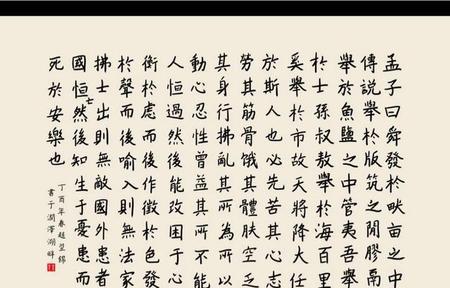 孟子曰舜發於畎畝之中
傅說舉於版築之間膠鬲
舉於魚鹽之中管夷吾舉
於士孫叔敖舉於海百里
奚舉於市故天將降大任
於斯人也必先苦其心志
勞其筋骨餓其體膚空乏
其身行拂亂其所為所以
動心忍性曾益其所不能
人恒過然後能改困于心
衡於慮而後作徵於色發
於聲而後喻入則無法家
拂士出則無敵國外患者
國恒亡然後知生于憂患而
死於安樂也
丁酉年春趙錦
書于潤澤湖畔